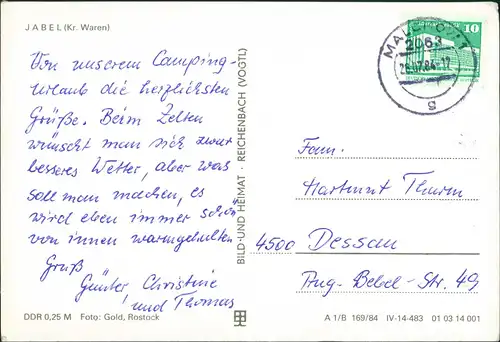 JABEL (Kr. Waren)
Von unserem Camping-
urlaub die herzlichsten
Grüße. Beim Zelten
wünscht man sich zwar
besseres Wetter, aber was
soll man machen, es
wird eben immer schön
von innen warmgehalten
Gruß
Günter, Christine
und Thomas
DDR 0,25 M Foto: Gold, Rostock
BILD UND HEIMAT · REICHENBACH (VOGTL)
10
MALCHOW
2063
28.07.84-12
s
Fam.
Hartmut Thurm
4500 Dessau
Aug.-Bebel-Str. 49
A 1/B 169/84 IV-14-483 01 03 14 001